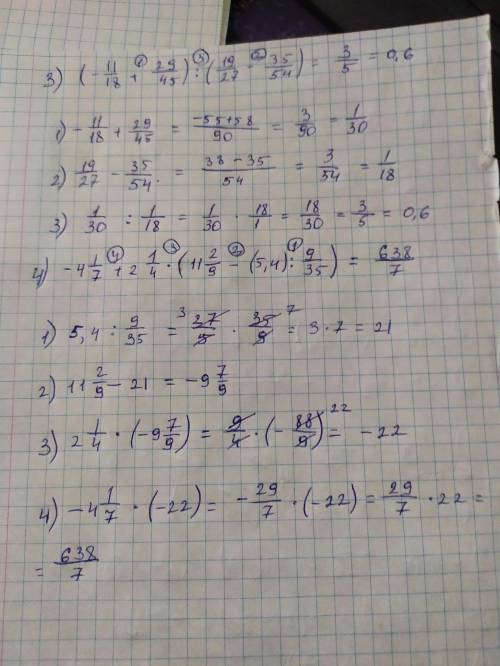 3) (-11/18 +① 29/45) :③ (19/27 -② 35/54) = 3/5 = 0,6
1) -11/18 + 29/45 = (-55+58)/90 = 3/90 = 1/30
2) 19/27 - 35/54 = (38-35)/54 = 3/54 = 1/18
3) 1/30 : 1/18 = 1/30 · 18/1 = 18/30 = 3/5 = 0,6
4) -4 1/7 +④ 2 1/4 ·③ (11 2/9 -② (5,4) :① 9/35) = 638/7
1) 5,4 : 9/35 = 3 27/5 · 35/9 7 = 3·7 = 21
2) 11 2/9 - 21 = -9 7/9
3) 2 1/4 · (-9 7/9) = 9/4 · (-88/9) 22 = -22
4) -4 1/7 · (-22) = -29/7 · (-22) = 29/7 · 22 =
= 638/7